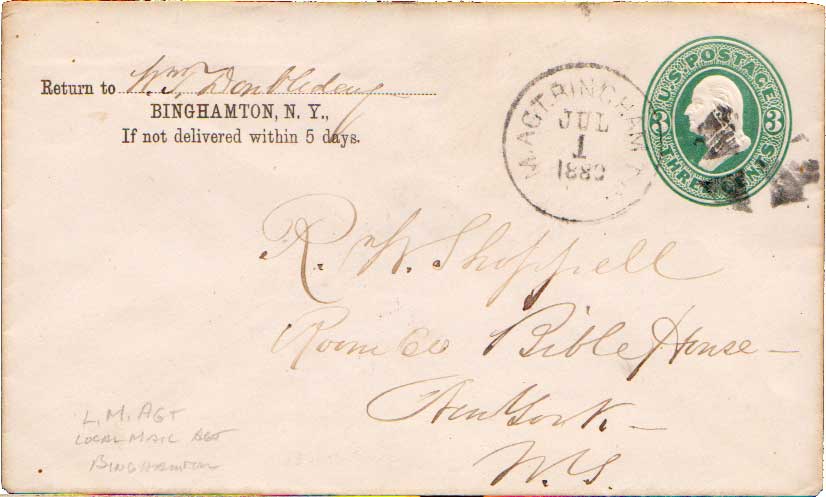 Return to Wm. J. Doubleday
BINGHAMTON, N. Y.,
If not delivered within 5 days.
M. AGT. BINGHAM
JUL
1
U.S. POSTAGE
3 3
THREE CENTS
R. W. Shoppell
Room Bible House
New York
L. M. AGT
LOCAL MAIL AGT
BINGHAMTON